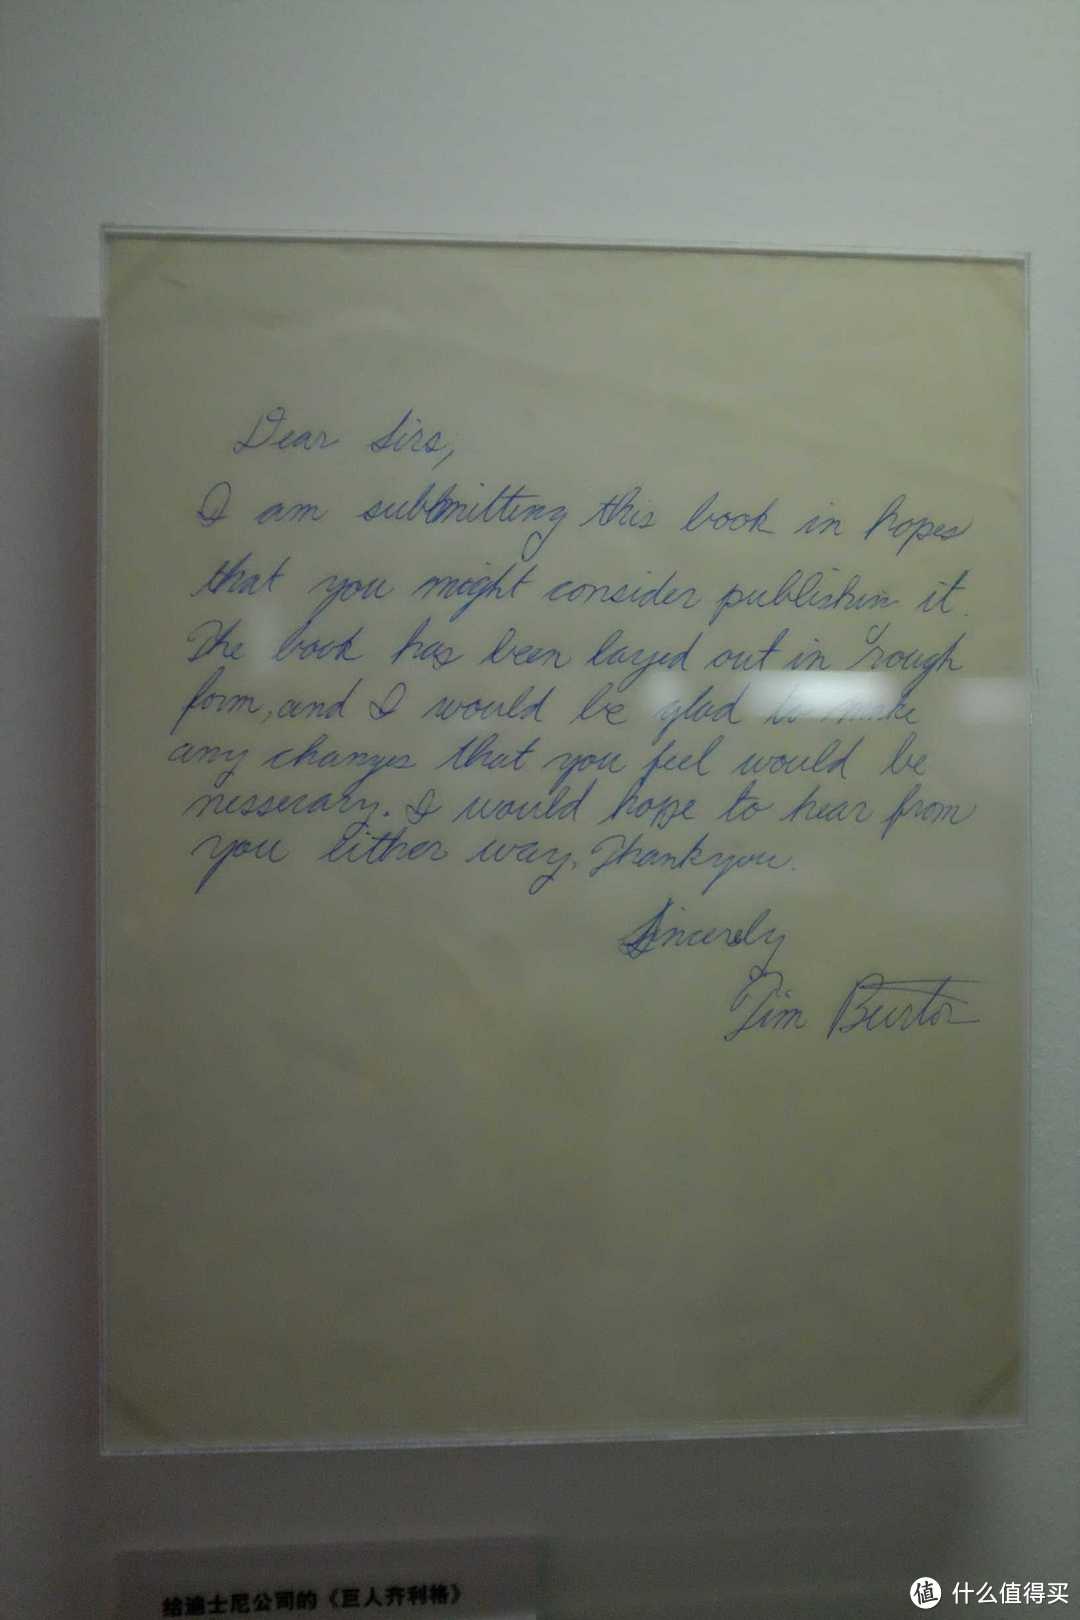 Dear Sirs,
I am submitting this book in hopes
that you might consider publishin it.
The book has been layed out in rough
form, and I would be glad to make
any changes that you feel would be
nessecary. I would hope to hear from
you either way. Thankyou.
Sincerely
Tim Burton
给迪士尼公司的《巨人齐利格》
值 什么值得买